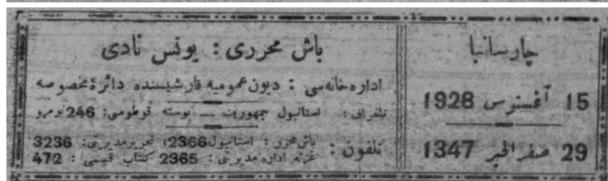 چارسانبا
15 آغستوس 1928
29 صفر الخير 1347
باش محررى : يونس نادى
اداره‌خانه‌سى : ديون عموميه قارشيسنده دائرۀ مخصوصه
تلغراف : استانبول جمهوريت — پوسته قوطوسى : 246 نومرو
تلفون : باش محرر : استانبول 2366، تحرير مديرى : 3236
غزته اداره مديرى : 2365 كتاب قسمى : 472